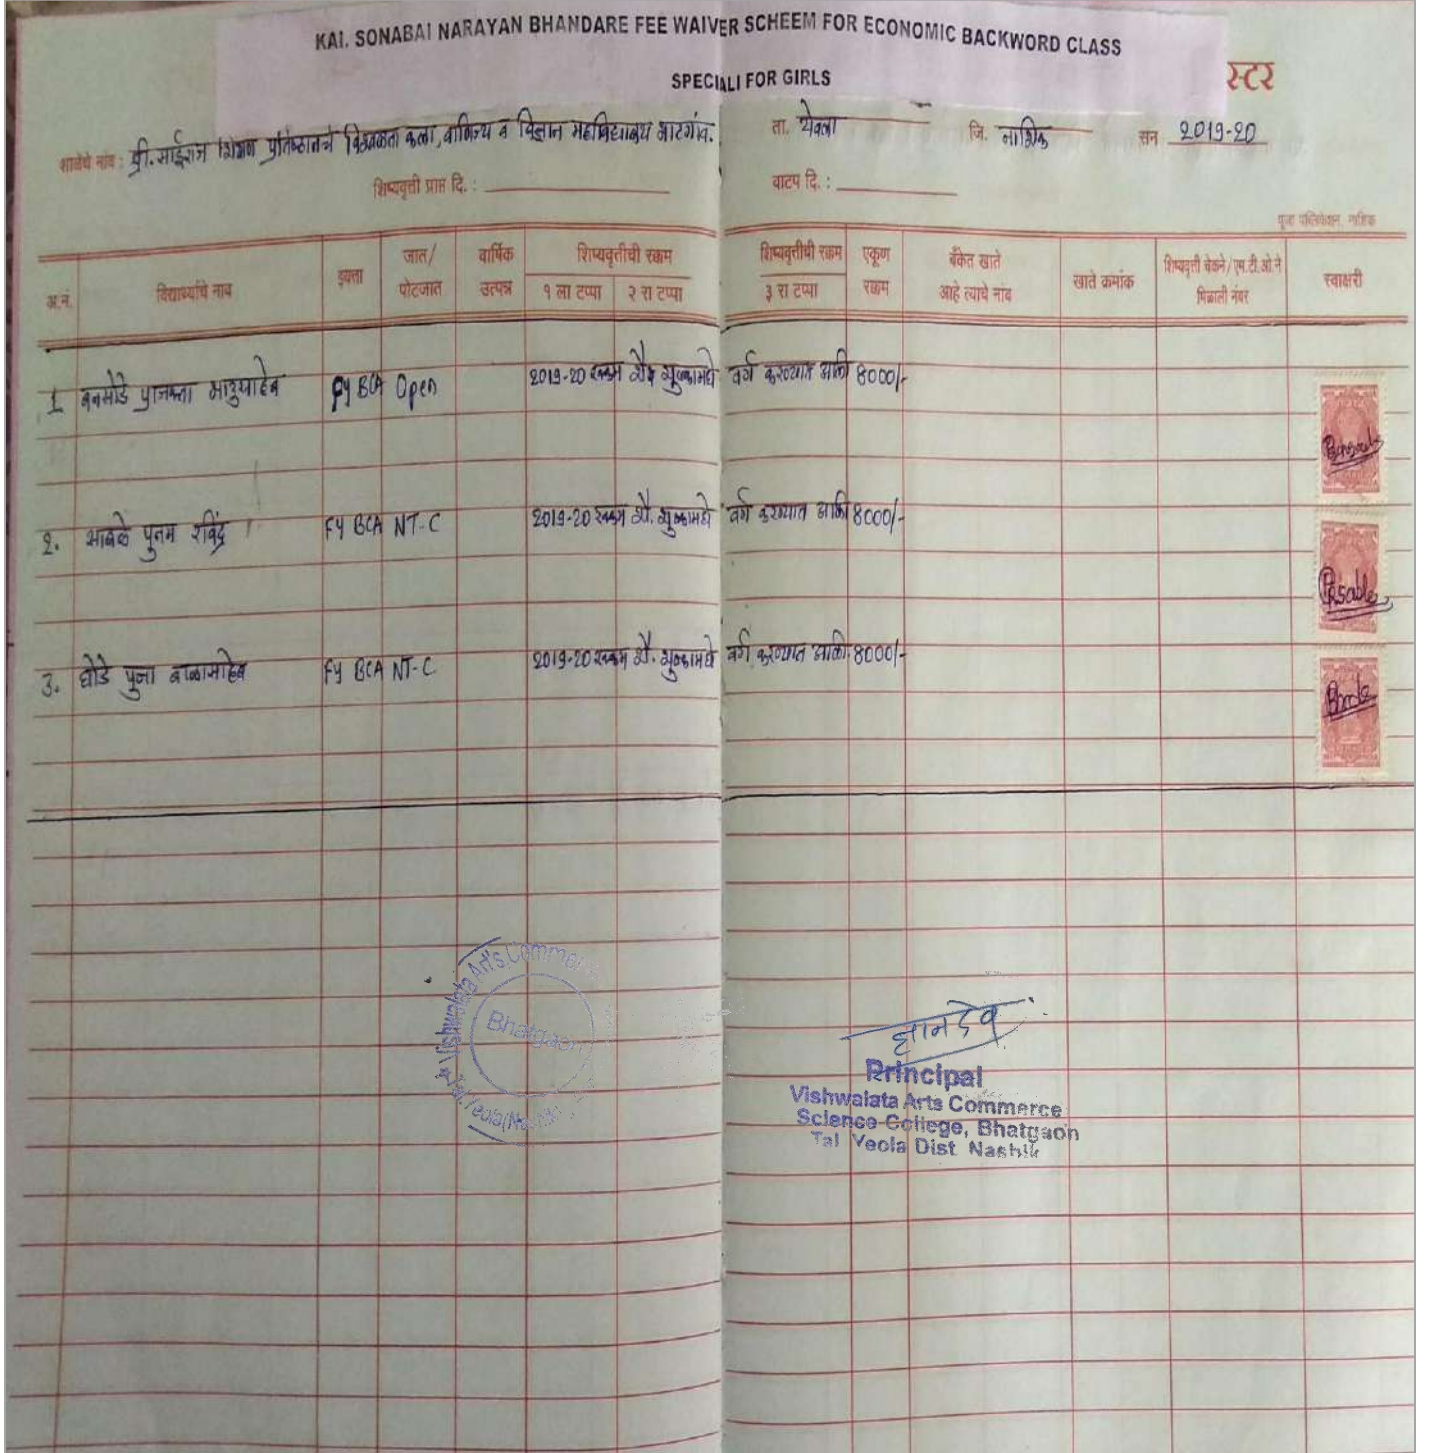 KAI. SONABAI NARAYAN BHANDARE FEE WAIVER SCHEEM FOR ECONOMIC BACKWORD CLASS
SPECIALI FOR GIRLS
स्टर
शाळेचे नांव : श्री. साईराज शिक्षण प्रतिष्ठानचे विश्वलता कला, वाणिज्य व विज्ञान महाविद्यालय भाटगांव. ता. येवला जि. नाशिक सन 2019-20
शिष्यवृत्ती प्राप्त दि. : वाटप दि. :
पूजा पब्लिकेशन नाशिक
अ.नं. विद्यार्थ्याचे नाव इयत्ता जात/ पोटजात वार्षिक उत्पन्न शिष्यवृत्तीची रक्कम १ ला टप्पा २ रा टप्पा शिष्यवृत्तीची रक्कम ३ रा टप्पा एकूण रक्कम बँकेत खाते आहे त्याचे नांव खाते क्रमांक शिष्यवृत्ती चेकने/एम.टी.ओ.ने मिळाली नंबर स्वाक्षरी
1 बनसोडे प्राजक्ता भाऊसाहेब FY BCA Open 2019-20 रक्कम शुल्कामध्ये वर्ग करण्यात आली 8000/-
2. साबळे पुनम रविंद्र FY BCA NT-C 2019-20 रक्कम शै. शुल्कामध्ये वर्ग करण्यात आली 8000/- PRSable
3. घोडे पुजा बाळासाहेब FY BCA NT-C 2019-20 रक्कम शै. शुल्कामध्ये वर्ग करण्यात आली 8000/-
Vishwalata Art's Commerce
Bhatgaon
Tal. Yeola (Nashik)
ज्ञानदेव
Principal
Vishwalata Arts Commerce
Science College, Bhatgaon
Tal Yeola Dist Nashik